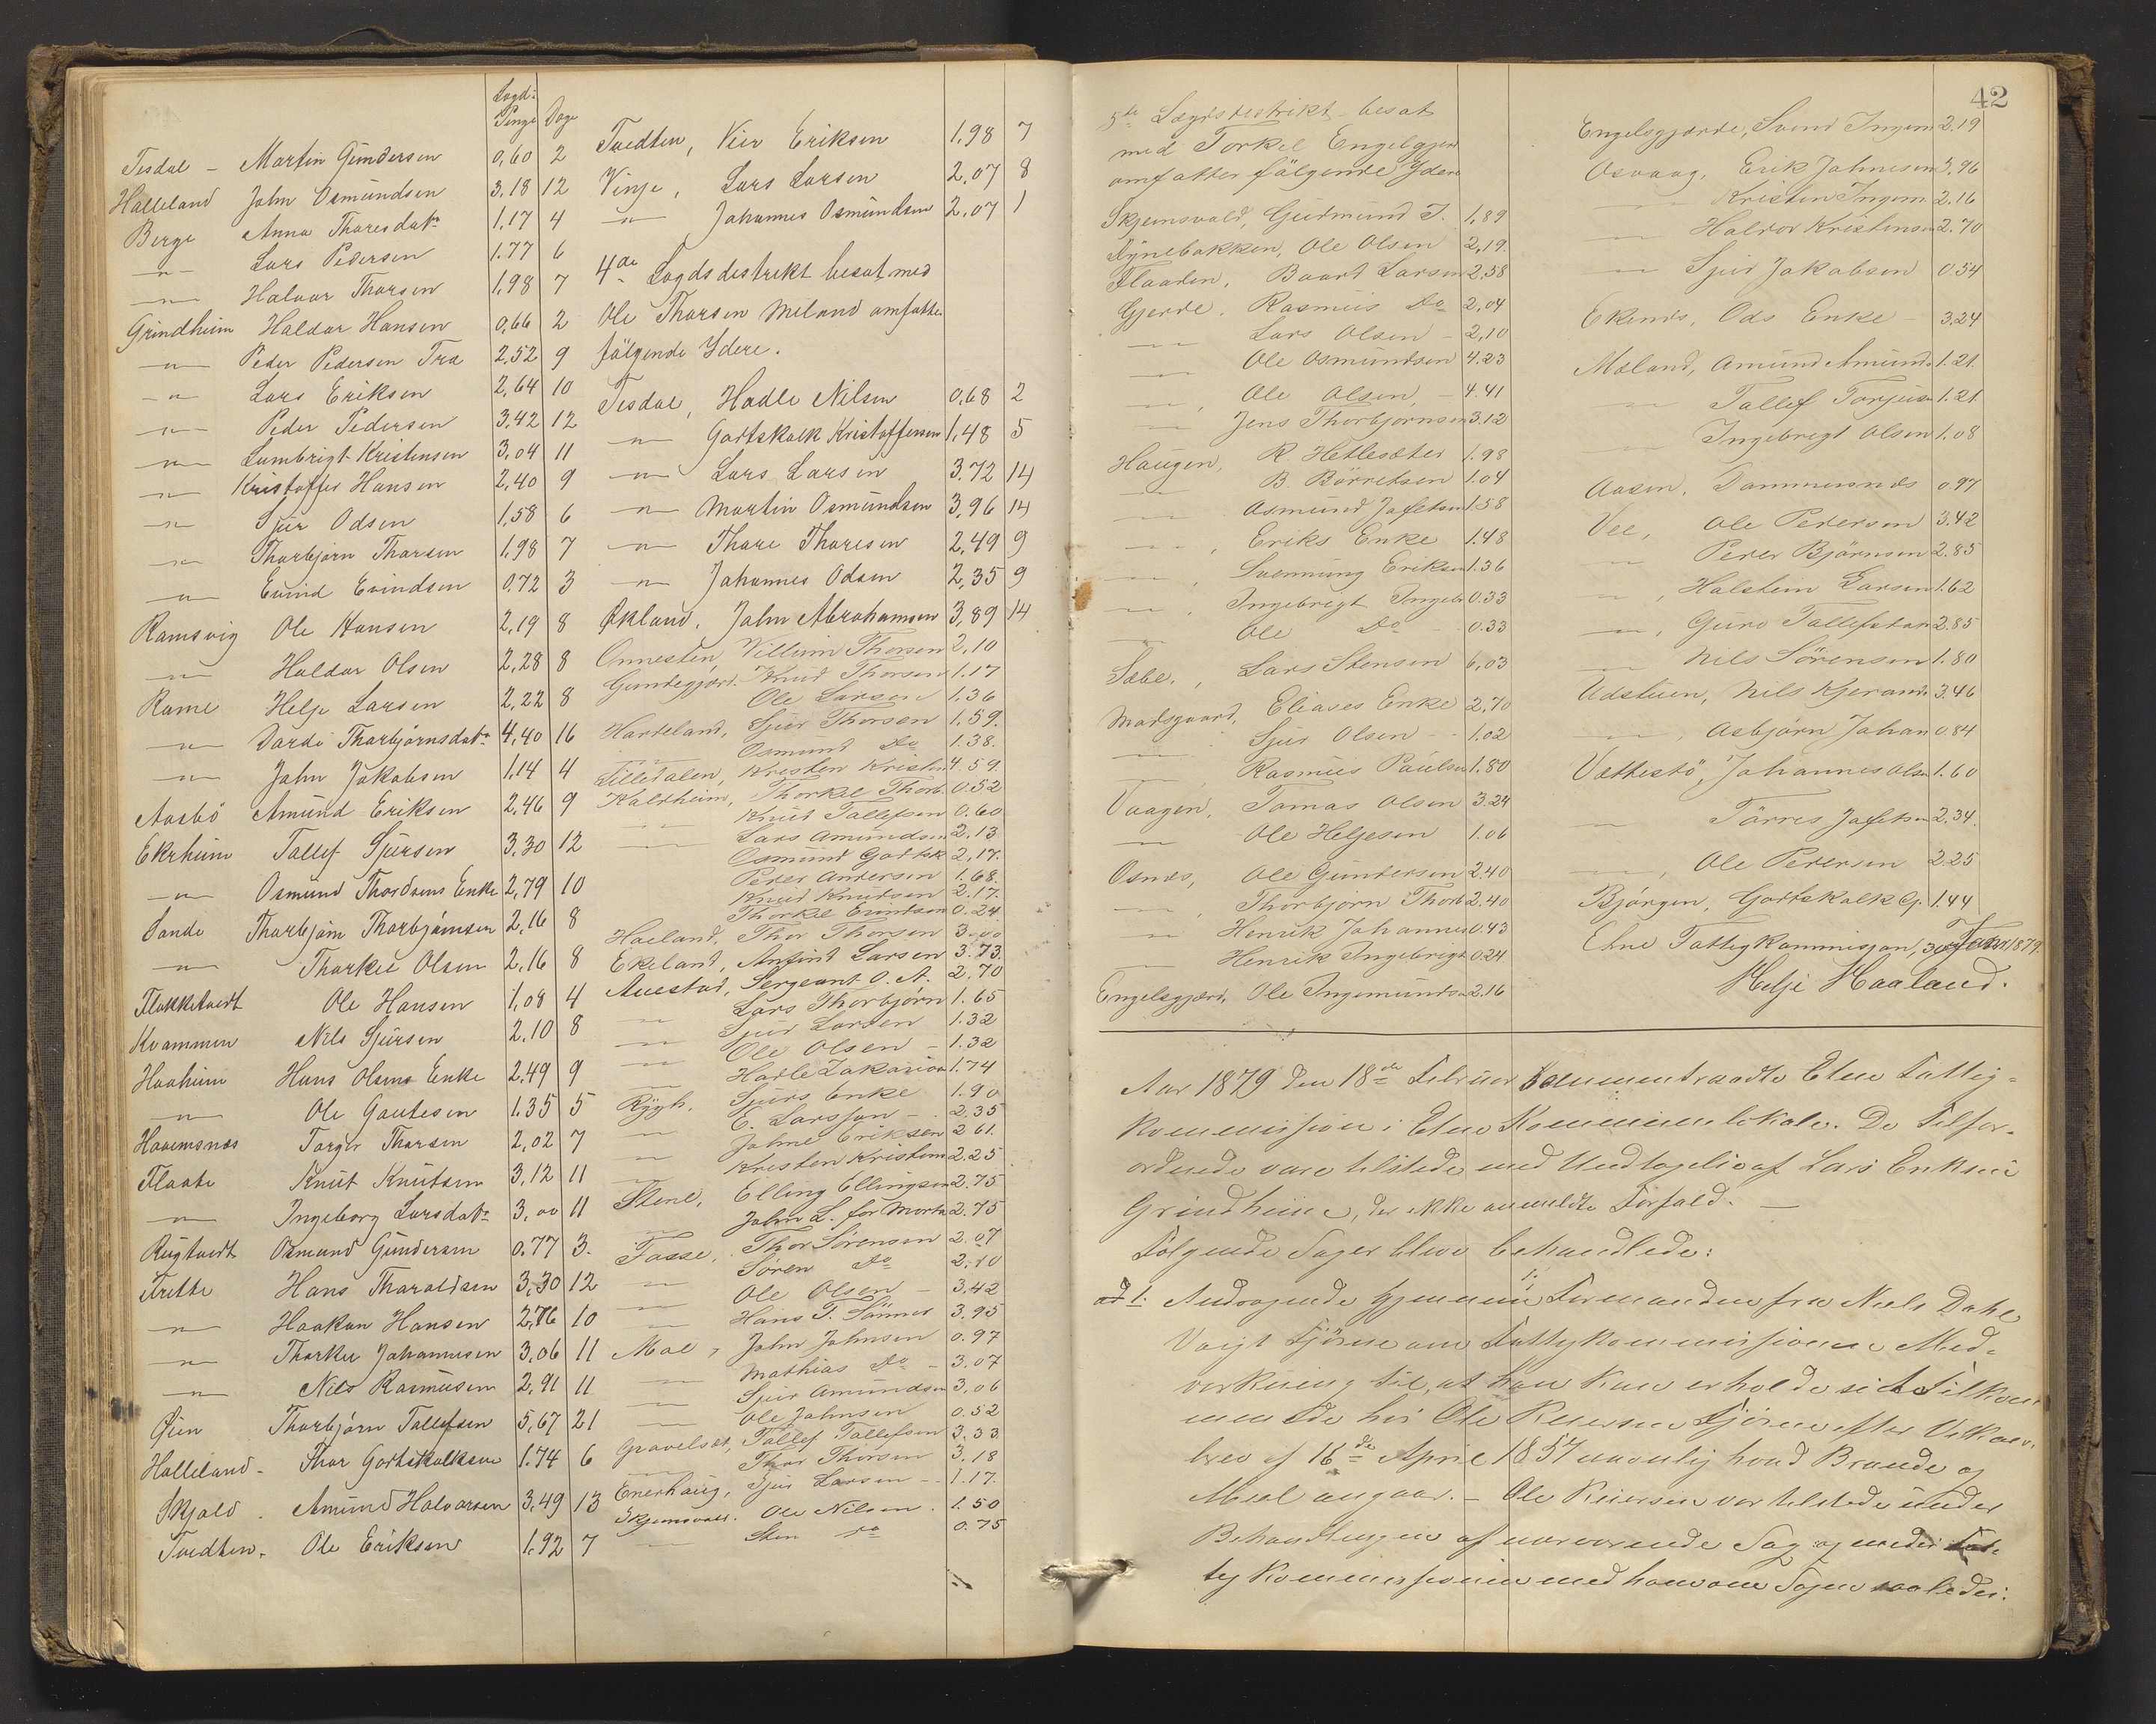 Lægd-
Penge Dage
Tesdal - Martin Gundersen 0,60 2
Halleland John Osmundsen 3,18 12
Berge Anna Thoresdatr 1,17 4
-"- Lars Pedersen 1.77 6
-"- Halvor Thorsen 1,98 7
Grindheim Haldor Hansen 0,66 2
-"- Peder Pedersen Tra 2,52 9
-"- Lars Eriksen 2,64 10
-"- Peder Pedersen 3,42 12
-"- Lambrigt Kristensen 3,04 11
-"- Kristoffer Hansen 2,40 9
-"- Sjur Odsen 1,58 6
-"- Thorbjørn Thorsen 1,98 7
-"- Evind Evindsen 0,72 3
Ramsvig Ole Hansen 2,19 8
-"- Haldor Olsen 2,28 8
Rame Helje Larsen 2,22 8
-"- Dardi Thorbjørnsdatr 4,40 16
-"- John Jakobsen 1,14 4
Aasbö Amund Eriksen 2,46 9
Ekrheim Tallef Sjursen 3,30 12
-"- Osmund Thordsens Enke 2,79 10
Sande Thorbjørn Thorbjørnsen 2,16 8
-"- Thorkel Olsen 2,16 8
Flokketvedt Ole Hansen 1,08 4
Kvammen Nils Sjursen 2,10 8
Haaheim Hans Olsens Enke 2,49 9
-"- Ole Gautesen 1.35 5
Haaemsnæs Torger Thorsen 2,02 7
Flaate Knut Knutsen 3,12 11
-"- Ingeborg Larsdatr 3,00 11
Rugtvedt Osmund Gundersen 0.77 3.
Frette Hans Tharaldsen 3,30 12
-"- Haakon Hansen 2,76 10
-"- Thorkel Johannesen 3,06 11
-"- Nils Rasmusen 2,91 11
Øien Thorbjørn Tallefsen 5,67 21
Halleland - Thor Gortskalksen 1.74 6
Skjold . Amund Halvorsen 3,49 13
Tvedten. Ole Eriksen 1.92 7
Tvedten, Vier Eriksen 1.98 7
Vinje, Lars Larsen 2,07 8
-"- Johannes Osmundsen 2,07 1
4de Lagdsdestrikt besat med
Ole Thorsen Mæland omfatte
fölgende Ydere.
Tesdal, Hadle Nilsen 0,68 2
-"- Gortskalk Kristoffersen 1,48 5
-"- Lars Larsen 3.72 14
-"- Martin Osmundsen 3,96 14
-"- Thore Thoresen 2,49 9
-"- Johannes Odsen 2,35 9
Økland, John Abrahamsen 3,89 14
Onnesten, Villum Thorsen 2,10
Gundegjerd. Knud Thorsen 1.17
Ole Larsen 1.36
Harteland, Sjur Thorsen 1.59.
Osmund Do 1.38.
Lilledalen, Kristen Kristen 4.59.
Kaldheim, Thorkel Thorb. 0.52
Knut Tallefsen 0.60
Lars Amundsen 2.13
Osmund Godtsk 2,17.
Peder Andersen 1.68.
Knud Knudsen 2.17.
Thorkel Evindsen 0.24
Haeland, Thor Thorsen 3.00
Ekeland, Anfind Larsen 3.73.
Auestad, Sergeant O. A. 2.70
Lars Thorbjørn 1.65
-"- Sjur Larsen 1.32
-"- Ole Olsen - 1.32
-"- Hadle Zakarias 1.74
Rygh, Sjurs Enke 1.90
E. Larsson - 2.35
-"- Johne Eriksen 2 61.
-"- Kristen Kristens 2.25
Stene, Elling Ellingsen 2.75
John L. for Morten 2.75
Tasse, Thor Sörensen 2.07
-"- Sören Do 2.10
-"- Ole Olsen - 3.42
-"- Hans T. Sönner 3.95
Mæl, John Johnsen 0.97
-"- Mathias Do - 3.07
-"- Sjur Amundsen 3,06
-"- Ole Johnsen 0.52
Gravelsæt, Tallef Tallefsen 3.33
-"- Thor Thorsen 3.18
Enerhaug, Sjur Larsen - 1.17.
Skjemsvold. Ole Nilsen. 1.50
-"- Sten Do 0.75
42
5te Lægdsdestrikt besat
med Torkel Engelsgjerd
omfatter følgende Ydere
Skjemsvold, Gudmund T. 1,89
Dynebakken, Ole Olsen 2,19
Flaaden, Baard Larsen 2,58
Gjerde, Rasmus Do 2,04
-"- Lars Olsen - 2,10
-"- Ole Osmundsen 4.23
-"- Ole Olsen, - 4.41
-"- Jens Thorbjørnsen 3.12
Haugen, R. Hetlesæter 1.98
-"- B. Börretsen 1.04
-"- Osmund Jafetsen 1.58
-"- , Eriks Enke 1.48
-"- , Svenning Eriksen 1.36
-"- , Ingebregt Ingeb 0.33
-"- Ole Do - 0.33
Sæbe, Lars Stensen 6,03
Madsgaard, Eliases Enke 2,70
-"- Sjur Olsen - 1.02
-"- Rasmus Paulsen 1,80
Vaagen, Tomas Olsen 3.24
-"- Ole Heljesen 1.06
Osnæs, Ole Gundersen 2.40
-"- , Thorbjørn Thorb 2.40
-"- Henrik Johannes 0.43
-"- Henrik Ingebrigt 0.24
Engelsgjerd, Ole Ingemundsen 2.16
Engelsgjærde, Svend Ingem 2.19
Osvaag, Erik Johnsen 3,96
-"- Kristen Ingem. 2.16
-"- Haldor Kristensen 2.70
-"- Sjur Jakobsen 0.54
Ekenæs, Ods Enke - 3.24
Mæland, Amund Amunds 1.21.
-"- Tallef Torjusen 1.21.
-"- Ingebregt Olsen 1.08
Aasen, Tammesnæs 0.97
Vee, Ole Pedersen 3.42
-"- Peder Björnsen 2.85
-"- , Halstein Larsen 1.62
-"- , Guro Tallefsdatr 2.85
-"- Nils Sörensen 1.80
Udstuen, Nils Kjerand 3.46
-"- , Asbjørn Johan 0.84
Vettestö, Johannes Olsen 1.60
-"- Törres Jafetsen 2.34.
-"- , Ole Pedersen 2.25
Bjørgen, Gortskalk Gj. 1.44
Etne Fattigkommisjon, 30 Jan 1879.
Helje Haaland.
Aar 1879 den 18de Februar sammentraadte Etne Fattig-
kommission i Etne Kommunelokale. De Tilfor-
ordnede vare tilstede med Undtagelse af Lars Eriksen
Grindheim, der ikke anmeldte Forfald. -
Følgende Sager blive behandlede:
ad 1. Andragende gjennem Formanden fra Niels Dahl
Voigt Fjörne om Fattigkommissionens Med-
virkning til, at han kan erholde sit Tilkom-
mende hos Ole Reiersen Fjörne efter Vilkaars
brev af 16de April 1857 navnlig hvad Brænde og
Meel angaar. - Ole Reiersen var tilstede under
Behandlingen af nærværende Sag og
tigkommissionen med ham om Sagen saaledes: